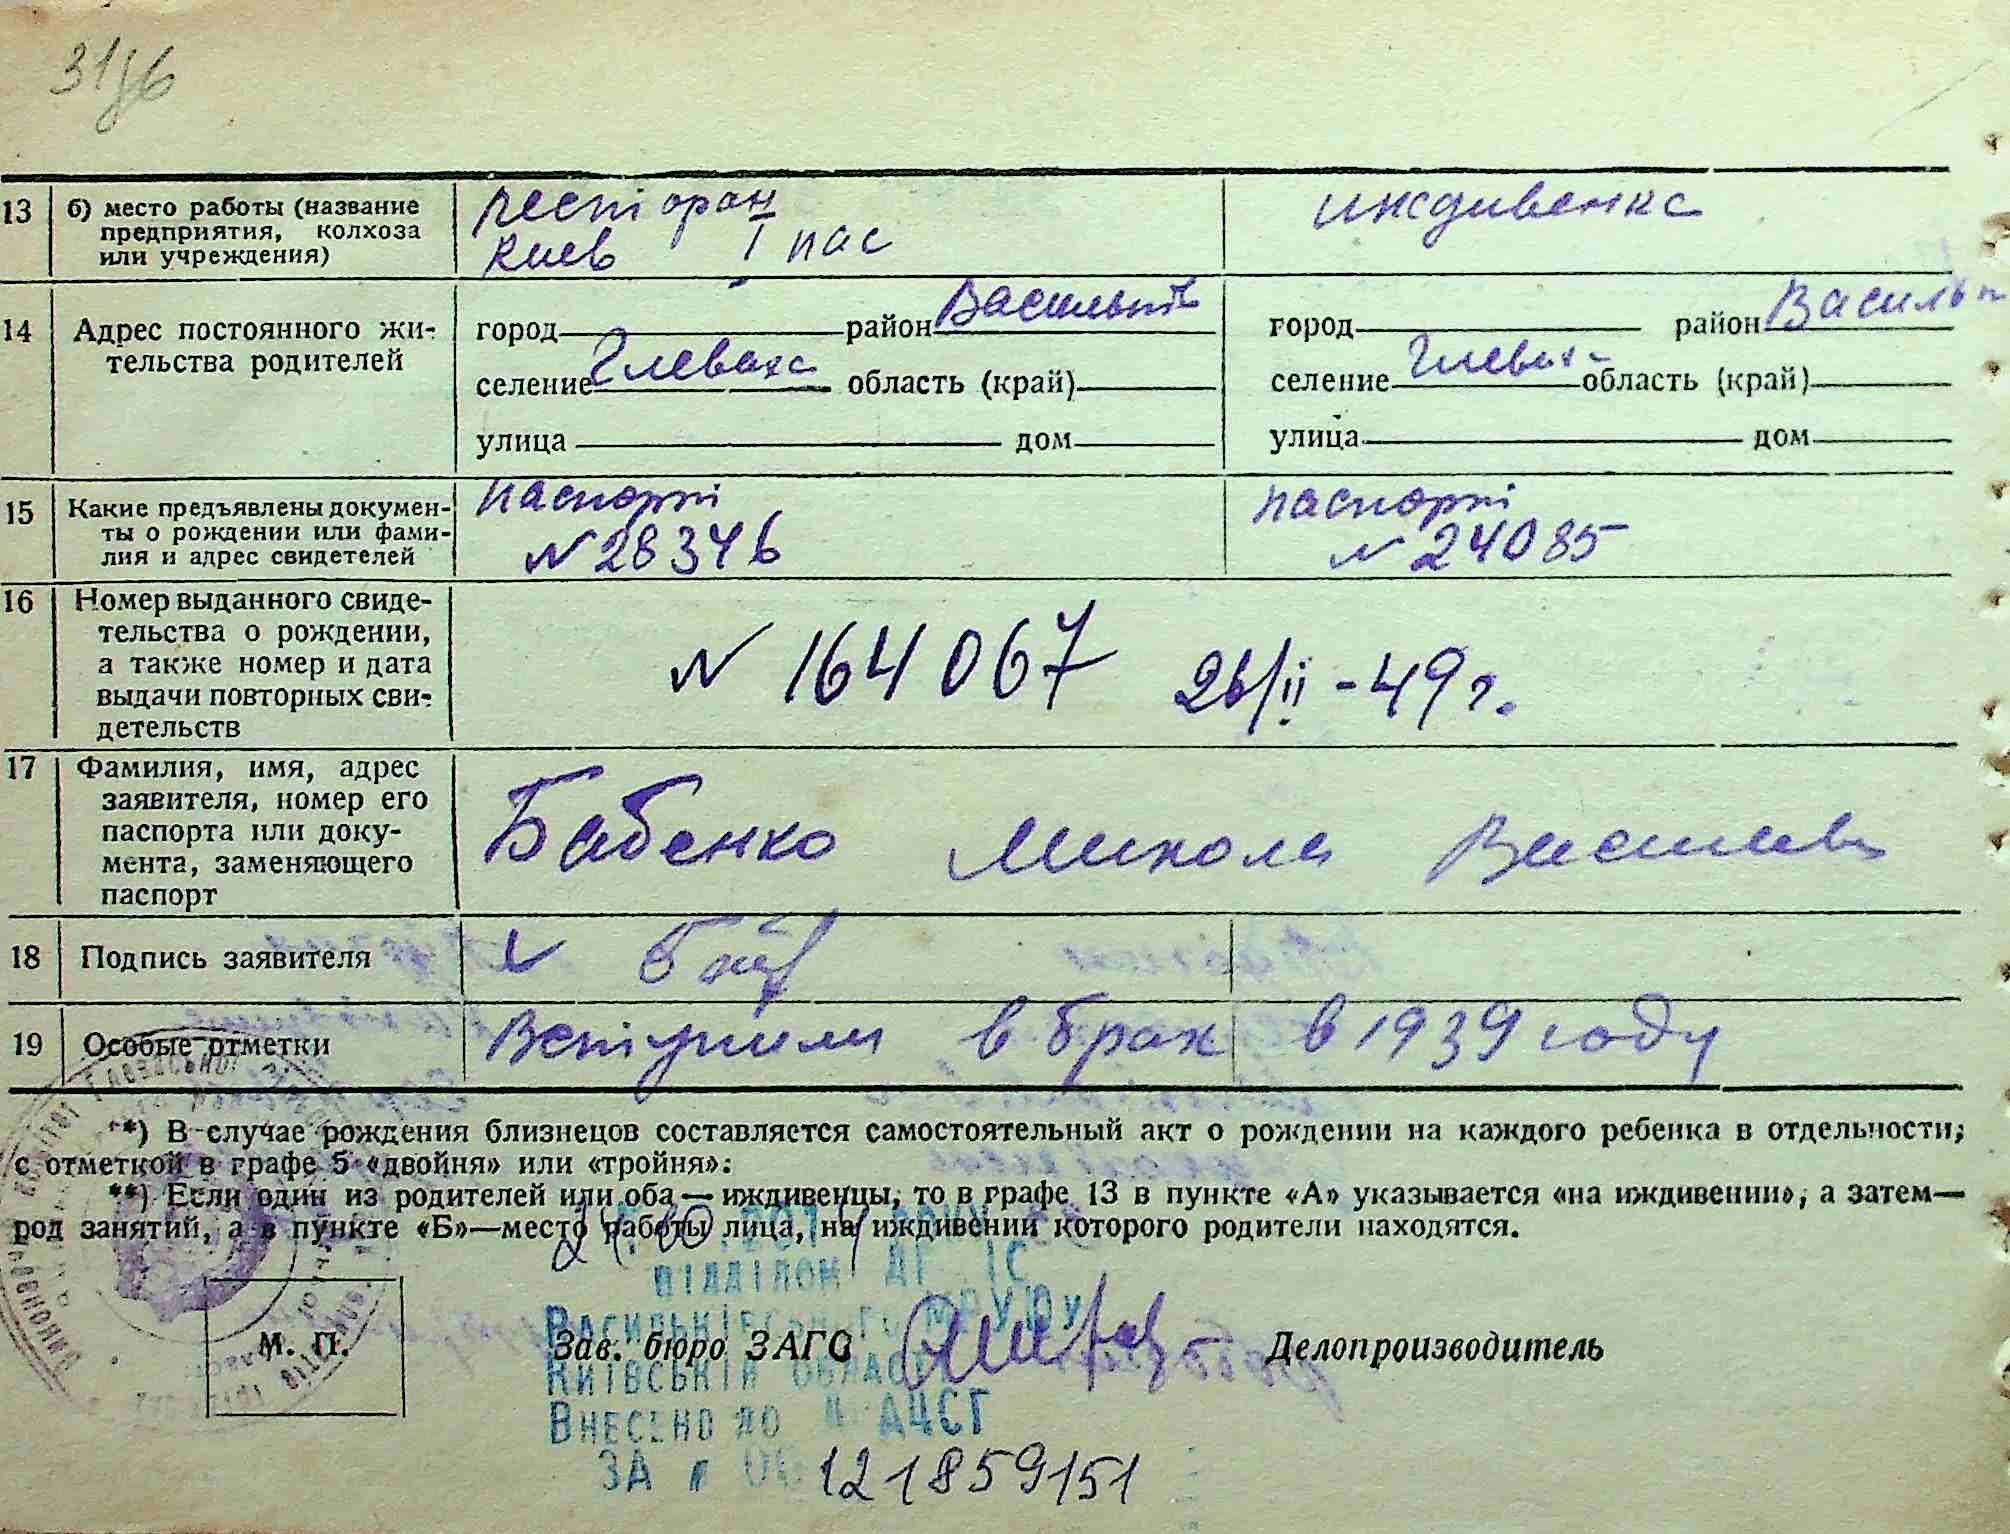 13 б) место работы (название предприятия, колхоза или учреждения)
ресторан
Киев I пас
иждивенка
14 Адрес постоянного жительства родителей
город район Васильків
селение Глеваха область (край)
улица дом
город район Васильк
селение Глевах область (край)
улица дом
15 Какие предъявлены документы о рождении или фамилия и адрес свидетелей
паспорт
№ 28346
паспорт
№ 24085
16 Номер выданного свидетельства о рождении, а также номер и дата выдачи повторных свидетельств
№ 164067 26/II - 49 г.
17 Фамилия, имя, адрес заявителя, номер его паспорта или документа, заменяющего паспорт
Бабенко Микола Василев
18 Подпись заявителя
19 Особые отметки
Вступили в брак в 1939 году
**) В случае рождения близнецов составляется самостоятельный акт о рождении на каждого ребенка в отдельности;
с отметкой в графе 5 «двойня» или «тройня»:
**) Если один из родителей или оба — иждивенцы, то в графе 13 в пункте «А» указывается «на иждивении», а затем—
род занятий, а в пункте «Б»—место работы лица, на иждивении которого родители находятся.
М. П.
Зав. бюро ЗАГС
Делопроизводитель
Київській област
Внесено до АЧСГ
ЗА № 00 121859151